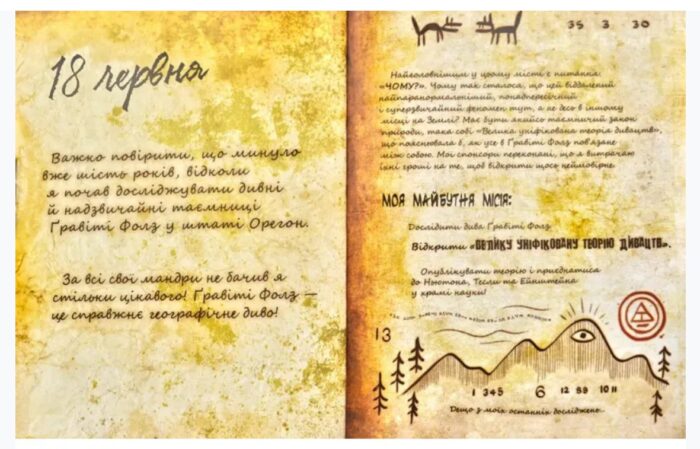 18 червня
Важко повірити, що минуло
вже шість років, відколи
я почав досліджувати дивні
й надзвичайні таємниці
Ґравіті Фолз у штаті Орегон.
За всі свої мандри не бачив я
стільки цікавого! Ґравіті Фолз —
це справжнє географічне диво!
35 3 30
Найголовнішим у цьому місті є питання:
«ЧОМУ?». Чому так сталося, що цей віддалений
найпаранормальніший, понадпересічний
і суперзвичайний феномен тут, а не десь в іншому
місці на Землі? Має бути якийсь таємничий закон
природи, така собі «Велика уніфікована теорія дивацтв»,
що пояснювала б, як усе в Ґравіті Фолз пов'язане
між собою. Мої спонсори переконані, що я витрачаю
їхні гроші на те, щоб відкрити щось неймовірне.
МОЯ МАЙБУТНЯ МІСІЯ:
Дослідити дива Ґравіті Фолз
Відкрити «ВЕЛИКУ УНІФІКОВАНУ ТЕОРІЮ ДИВАЦТВ».
Опублікувати теорію і приєднатися
до Ньютона, Тесли та Ейнштейна
у храмі науки!
13
1 345 6 12 59 10 11
Дещо з моїх останніх досліджень...